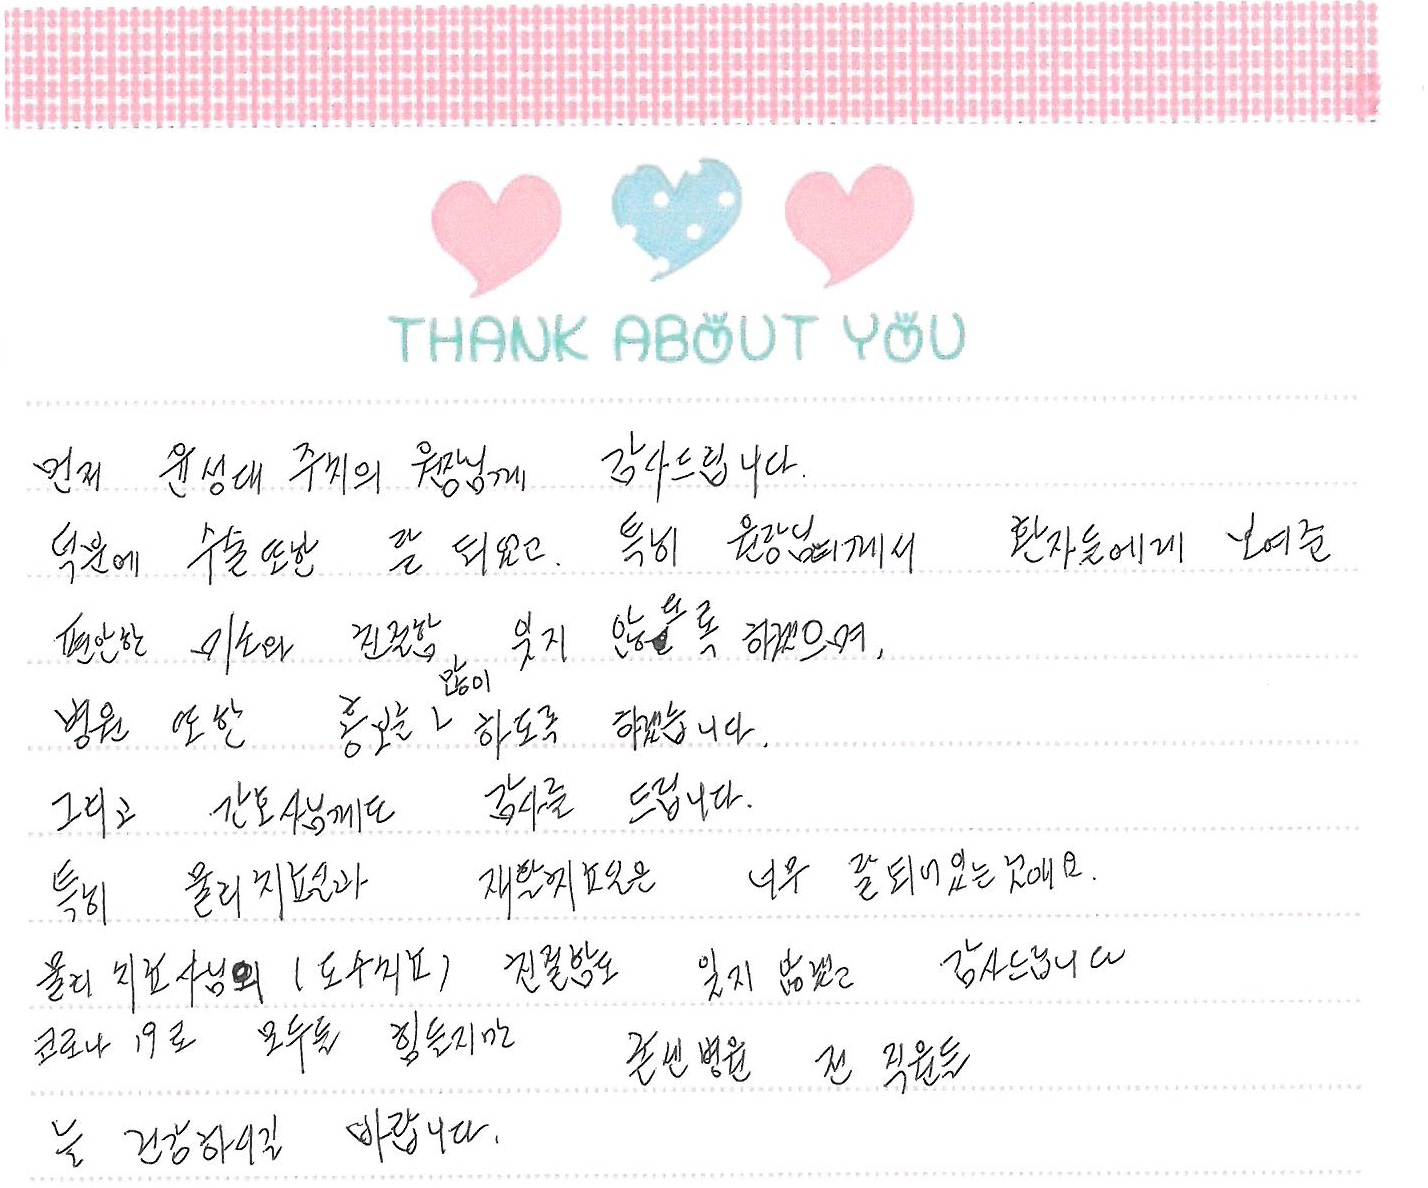 THANK ABOUT YOU
먼저 윤성대 주치의 원장님께 감사드립니다.
덕분에 수술또한 잘 되었고. 특히 원장님께서 환자들에게 보여준
편안한 미소와 친절함 잊지 않도록 하겠으며,
병원 또한 홍보를 많이 하도록 하겠습니다.
그리고 간호사님께도 감사를 드립니다.
특히 물리치료실과 재활치료실은 너무 잘되어있는것에요.
물리치료사님의 (도수치료) 친절함도 잊지 않겠고 감사드립니다
코로나 19로 모두들 힘들지만 굳센병원 전 직원들
늘 건강하시길 바랍니다.